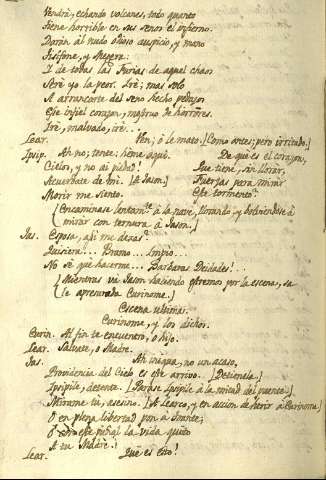 Vendrá, echando volcanes, todo quanto
tiene horrible en sus senos el infierno.
Darán al crudo auspicio, y mano
Tisifone, y Megera:
I de todas las Furias de aquel chaos
Seré yo la peor. Iré; mas solo
A arrancarte del seno hecho pedazos
Ese infiel corazon, monstruo de horrores.
Iré, malvado, iré...
Lear. Ven; ó le mato. [Como antes; pero irritado.]
Ipsip. Ah no; tente: héme aquí. De qué es el corazon,
Cielos, y no ai piedad! Que tiene, sin llorar,
Acuerdate de mi. [A Jason.] Fuerzas para mirar
Morir me siento. Este tormento?
[Encaminase lentam.te á la nave, llorando, y bolviendose á
mirar con ternura á Jason.]
Jas. Esposa, asi me dexas?
Quisiera... Bruno... Impio...
No sé que hacerme... Barbaras Deidades!..
[Mientras va Jason haciendo estremos por la escena, sa
le apresurada Eurinome.]
Escena ultima.
Eurinome, y los dichos.
Eurin. Al fin te encuentro, o hijo.
Lear. Salvate, o Madre.
Jas. Ah iniqua, no un acaso,
Providencia del Cielo es este arrivo. [Detienela.]
Ipsipile, detente. [Parase Ipsipile á la mitad del puente.]
Mirame tu, asesino. [A Learco, y en accion de herir á Eurinome.]
O en plena libertad pon á
O este puñal la vida quito
A tu Madre.
Lear. Qué es esto!